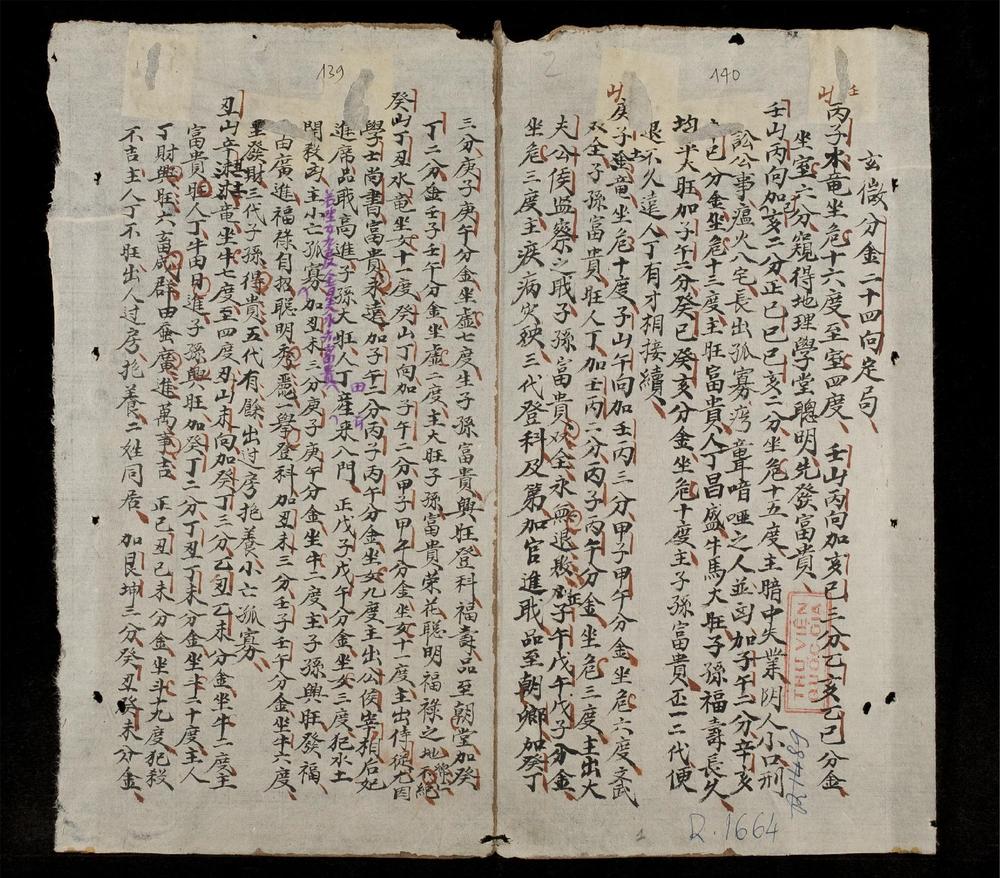 140
玄微分金二十四向定句
丙子水竜坐危十六度至室四度 壬山丙向加亥巳三分乙亥乙巳分金
坐室六分窺得地理學堂聰明先發富貴
壬山丙向加亥二分正己巳己亥二分坐危十五度主暗中失業阴人小口刑
訟公事瘟火八宅長出孤寡 聾喑啞之人並 加子午二分辛亥
巳分金坐危十三度主旺富貴人丁昌盛牛馬大旺子孫福壽長久
均平大旺加子午二分癸巳癸亥分金坐危十度主子孫富貴 一二代便
退不久遠人丁有才相接續
庚子 竜坐危十度子山午向加壬丙三分甲子甲午分金坐危六度文武
双全子孫富貴旺人丁加壬丙二分丙子丙午分金坐危三度主出大
夫公侯监察之戢子孫富貴双全永無退敗 子午戊午戊子分金
坐危三度主疾病灾殃三代登科及第加官進戢品至朝卿加癸丁
THƯ VIỆN
QUỐC GIA
R.1489
R.1664
139
三分庚子庚午分金坐虛七度生子孫富貴興旺登科福壽品至朝堂加癸
丁二分金壬子壬午分金坐虛二度主大旺子孫富貴荣花聰明福禄之地
癸山丁丑水竜坐女十一度癸山丁向加子午二分甲子甲午分金坐女十一度主出侍從
學士尚書富貴永遠加子午一分丙子丙午分金坐女九度主出公侯宰相后妃
進席品戢高進子孫大旺人丁 産來入門 正戊子戊午分金坐女三度犯水土
閒殺凶主小亡孤寡加丑未三分庚子庚午分金坐牛一度主子孫興旺發福
由廣進福祿自招聰明秀麗一舉登科加丑未三分壬子壬午分金坐牛六度
里發財三代子孫得貴五代有餘出过房抱養小亡孤寡
丑山辛 竜坐牛七度至四度丑山未向加癸丁三分乙丑乙未分金坐牛二度主
富貴旺人丁牛田日進子孫興旺加癸丁二分丁丑丁未分金坐斗二十度主人
丁財興旺六畜成群田蚕廣進萬事吉 正己丑己未分金坐斗十九度犯殺
不吉主人丁不旺出人过房抱養二姓同居 加艮坤三分癸丑癸未分金